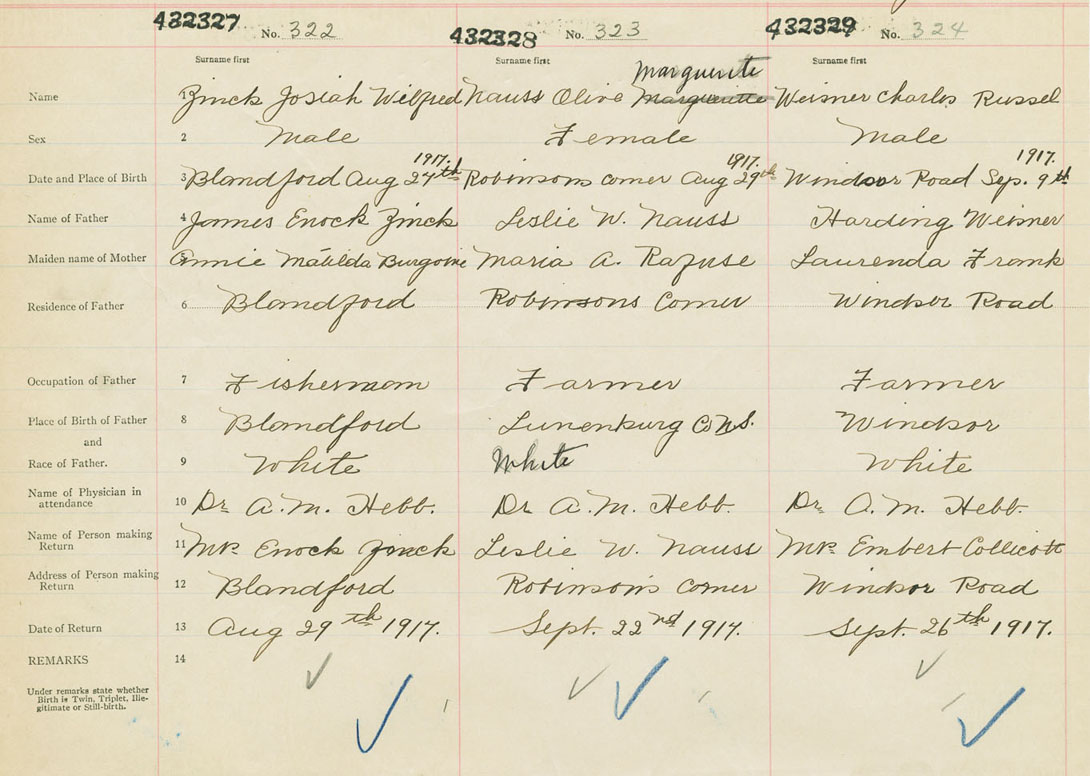 432327 No. 322 432328 No. 323 432329 No. 324
Surname first Surname first Surname first
Marguerite
Name 1 Zinck Josiah Wilfred Nauss Olive Marguerite Weisner Charles Russel
Sex 2 Male Female Male
1917. 1917. 1917.
Date and Place of Birth 3 Blandford Aug 24th Robinsons Corner Aug 29th Windsor Road Sep. 9th
Name of Father 4 James Enock Zinck Leslie W. Nauss Harding Weisner
Maiden name of Mother 5 Annie Matilda Burgoine Maria A. Rafuse Laurenda Frank
Residence of Father 6 Blandford Robinsons Corner Windsor Road
Occupation of Father 7 Fisherman Farmer Farmer
Place of Birth of Father 8 Blandford Lunenburg Co N.S. Windsor
and
Race of Father. 9 White White White
Name of Physician in
attendance 10 Dr. A. M. Hebb. Dr. A. M. Hebb. Dr. A. M. Hebb.
Name of Person making
Return 11 Mr. Enock Zinck Leslie W. Nauss Mr. Embert Collicott
Address of Person making
Return 12 Blandford Robinson's Corner Windsor Road
Date of Return 13 Aug 29th 1917. Sept. 22nd 1917. Sept. 26th 1917.
REMARKS 14
Under remarks state whether
Birth is Twin, Triplet, Ille-
gitimate or Still-birth.